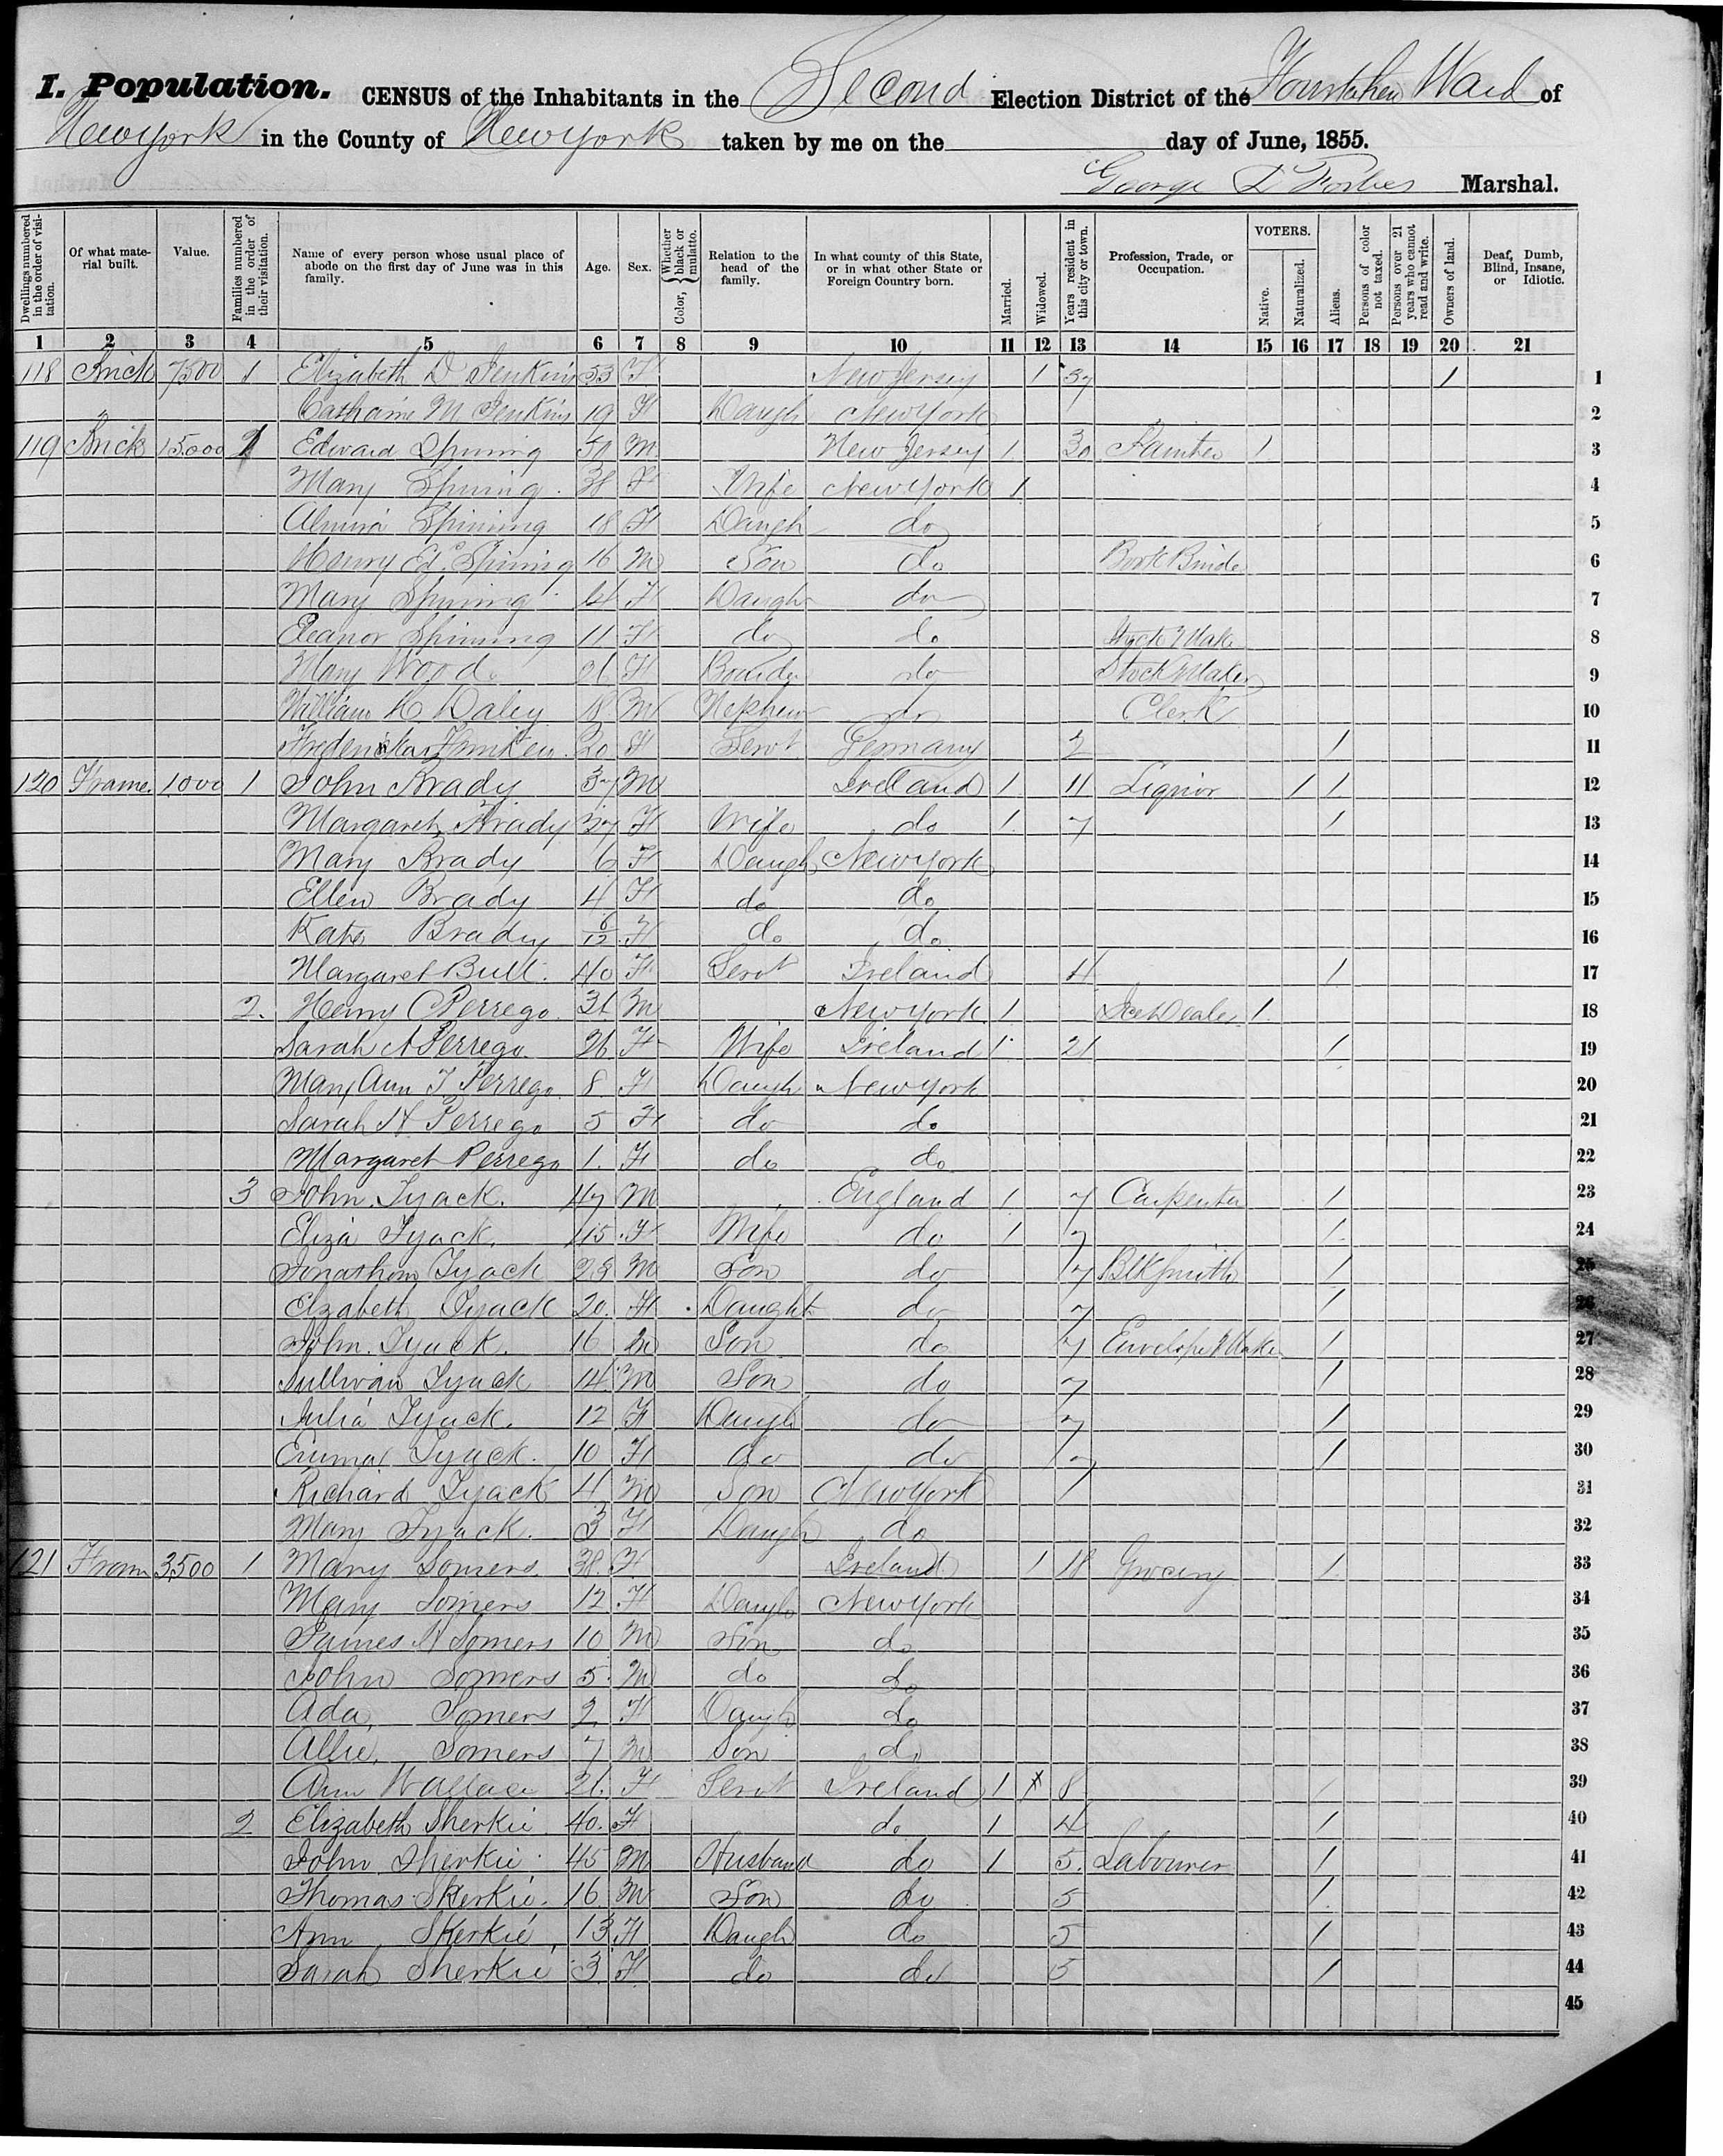 I. Population. CENSUS of the Inhabitants in the Second Election District of the Fourteenth Ward of
New York in the County of New York taken by me on the day of June, 1855.
George Forbes Marshal.
Dwellings numbered in the order of visitation.
Of what material built.
Value.
Families numbered in the order of their visitation.
Name of every person whose usual place of abode on the first day of June was in this family.
Age.
Sex.
Color, { Whether black or mulatto.
Relation to the head of the family.
In what county of this State, or in what other State or Foreign Country born.
Married.
Widowed.
Years resident in this city or town.
Profession, Trade, or Occupation.
VOTERS.
Native.
Naturalized.
Aliens.
Persons of color not taxed.
Persons over 21 years who cannot read and write.
Owners of land.
Deaf, Dumb, Blind, Insane, or Idiotic.
1 2 3 4 5 6 7 8 9 10 11 12 13 14 15 16 17 18 19 20 21
118 Brick 7500 1 Elizabeth D Jenkins 53 F New Jersey 1 37 1 1
Catharine M Jenkins 19 F Daugh New York 2
119 Brick 15000 1 Edward Spining 50 M New Jersey 1 30 Painter 1 3
Mary Spining 38 F Wife New York 1 4
Almira Spining 18 F Daugh do 5
Henry Ed. Spining 16 M Son do Book Binde 6
Mary Spining 14 F Daugh do 7
Eleanor Spinning 11 F do do Stock Make 8
Mary Wood 26 F Boarder do Stock Maker 9
William H Daley 18 M Nephew do Clerk 10
20 F Servt Germany 2 1 11
120 Frame 1000 1 John Brady 37 M Ireland 1 11 Liquor 1 1 12
Margaret Brady 37 F Wife do 1 7 1 13
Mary Brady 6 F Daugh New York 14
Ellen Brady 4 F do do 15
Kate Brady 6/12 F do do 16
Margaret Bull 40 F Servt Ireland 4 1 17
2 Henry C Perrego 31 M New York 1 Ice Dealer 1 18
Sarah A Perrego 26 F Wife Ireland 1 21 1 19
Mary Ann T Perrego 8 F Daugh New York 20
Sarah H Perrego 5 F do do 21
Margaret Perrego 1 F do do 22
3 John Tyack 47 M England 1 7 Carpenter 1 23
Eliza Tyack 45 F Wife do 1 7 1 24
Jonathan Tyack 23 M Son do 7 Blksmith 1 25
Elzabeth Tyack 20 F Daught do 7 1 26
John Tyack 16 M Son do 7 Envelope Make 1 27
Sullivan Tyack 14 M Son do 7 1 28
Julia Tyack 12 F Daugh do 7 1 29
Emma Tyack 10 F do do 7 1 30
Richard Tyack 4 M Son New York 31
Mary Tyack 3 F Daugh do 32
121 Fram 3500 1 Mary Somers 38 F Ireland 1 18 Grocery 1 33
Mary Somers 12 F Daugh New York 34
James H Somers 10 M Son do 35
John Somers 5 M do do 36
Ada Somers 2 F Daugh do 37
Allie Somers 7 M Son do 38
Ann Wallace 26 F Servt Ireland 1 8 1 39
2 Elizabeth Sherkie 40 F do 1 4 1 40
John Sherkie 45 M Husband do 1 5 Labourer 1 41
Thomas Skerkie 16 M Son do 5 1 42
Ann Skerkie 13 F Daugh do 5 1 43
Sarah Sherkie 3 F do do 5 1 44
45